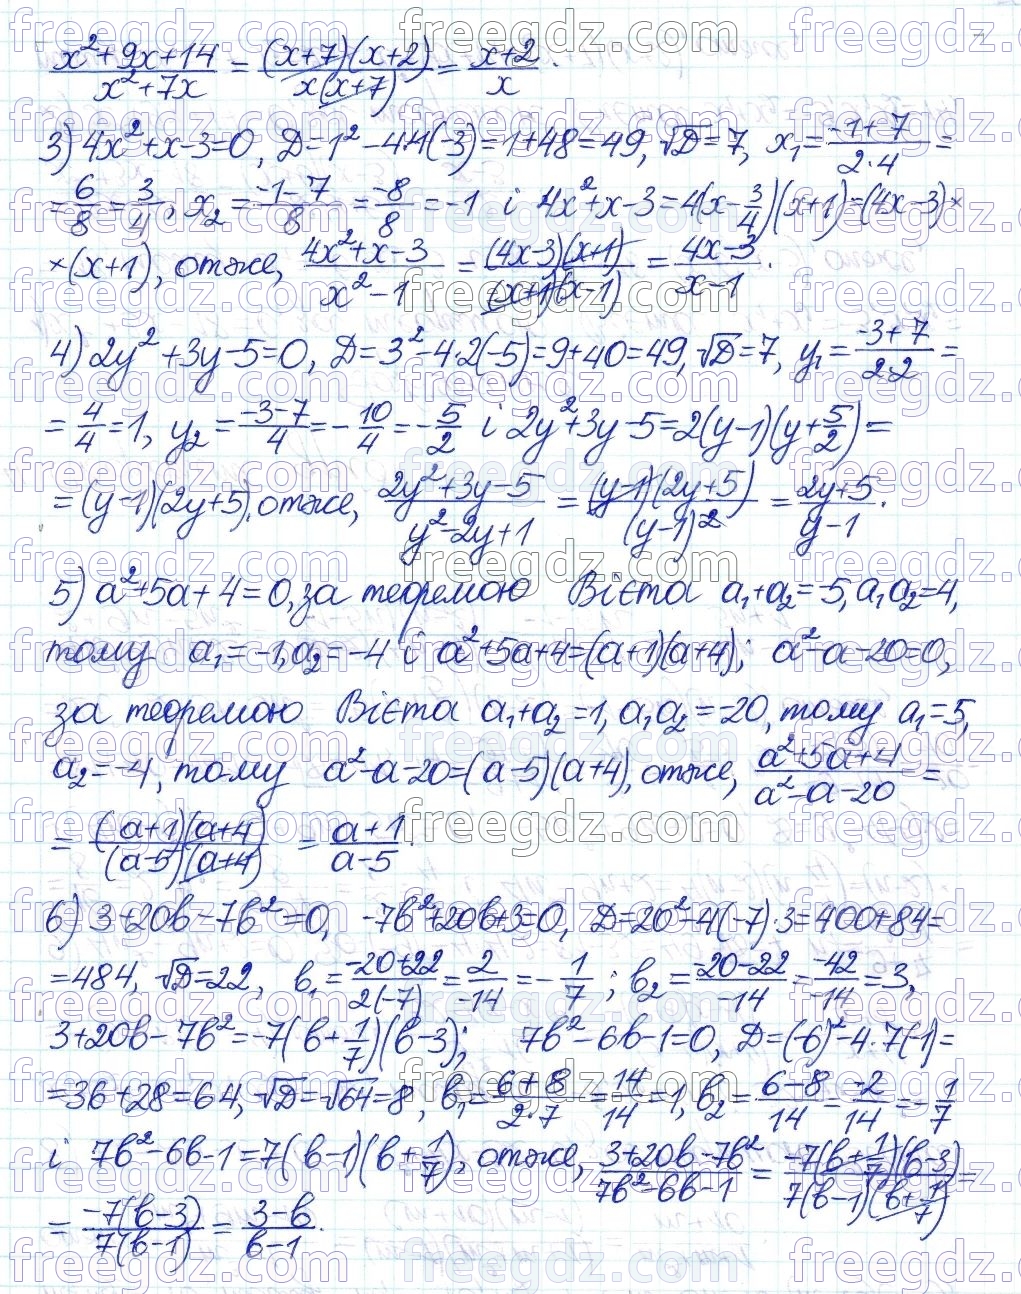 x²+9x+14 / x²+7x = (x+7)(x+2) / x(x+7) = x+2 / x.
3) 4x²+x-3=0, D=1²-4·4(-3)=1+48=49, √D=7, x₁= -1+7 / 2·4 =
= 6/8 = 3/4; x₂= -1-7 / 8 = -8/8 = -1 і 4x²+x-3=4(x-3/4)(x+1)=(4x-3)×
×(x+1), отже, 4x²+x-3 / x²-1 = (4x-3)(x+1) / (x+1)(x-1) = 4x-3 / x-1.
4) 2y²+3y-5=0, D=3²-4·2(-5)=9+40=49, √D=7, y₁= -3+7 / 2·2 =
= 4/4 = 1, y₂= -3-7 / 4 = -10/4 = -5/2 і 2y²+3y-5=2(y-1)(y+5/2)=
=(y-1)(2y+5), отже, 2y²+3y-5 / y²-2y+1 = (y-1)(2y+5) / (y-1)² = 2y+5 / y-1.
5) a²+5a+4=0, за теоремою Вієта a₁+a₂=-5, a₁a₂=4,
тому a₁=-1, a₂=-4 і a²+5a+4=(a+1)(a+4); a²-a-20=0,
за теоремою Вієта a₁+a₂=1, a₁a₂=-20, тому a₁=5,
a₂=-4, тому a²-a-20=(a-5)(a+4), отже, a²+5a+4 / a²-a-20 =
= (a+1)(a+4) / (a-5)(a+4) = a+1 / a-5.
6) 3+20b-7b²=0, -7b²+20b+3=0, D=20²-4(-7)·3=400+84=
=484, √D=22, b₁= -20+22 / 2(-7) = 2/-14 = -1/7; b₂= -20-22 / -14 = -42/-14 = 3,
3+20b-7b²=-7(b+1/7)(b-3); 7b²-6b-1=0, D=(-6)²-4·7(-1)=
=36+28=64, √D=√64=8, b₁= 6+8 / 2·7 = 14/14 = 1, b₂= 6-8 / 14 = -2/14 = -1/7
і 7b²-6b-1=7(b-1)(b+1/7), отже, 3+20b-7b² / 7b²-6b-1 = -7(b+1/7)(b-3) / 7(b-1)(b+1/7) =
= -7(b-3) / 7(b-1) = 3-b / b-1.
freegdz.com